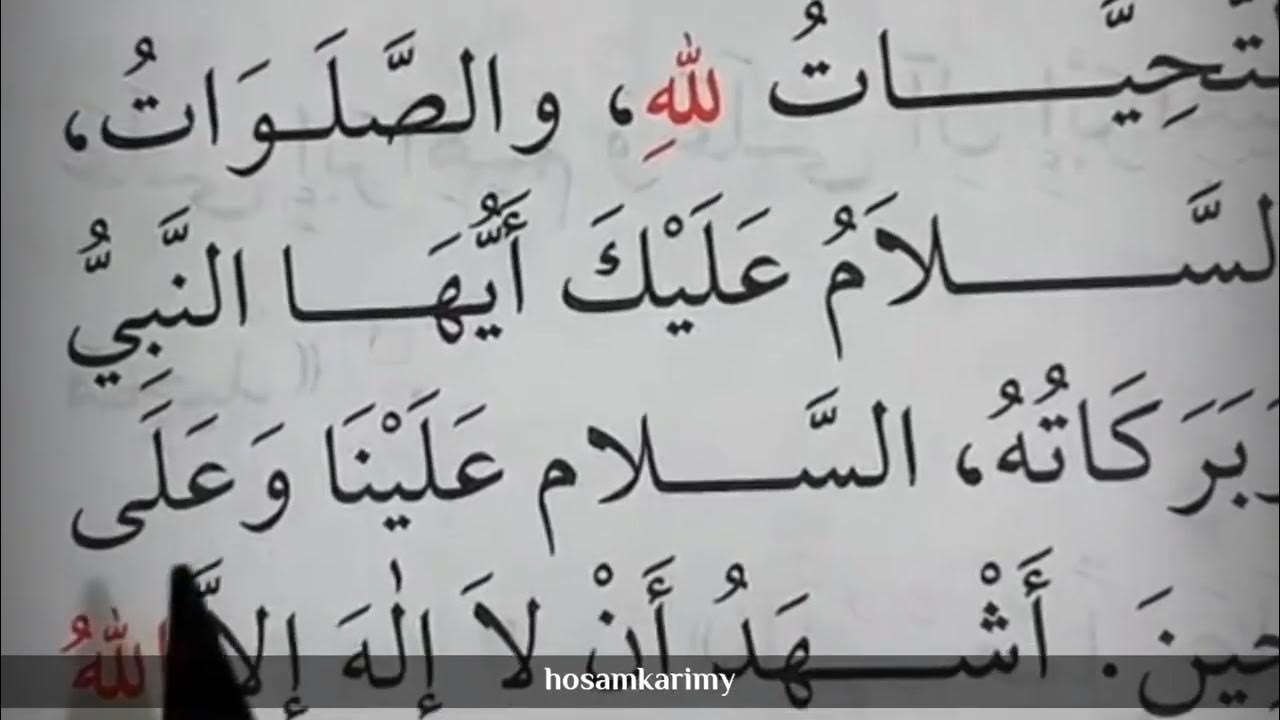 لتَّحِيَّـــاتُ للهِ، والصَّلَـوَاتُ،
لسَّـــلاَمُ عَلَيْكَ أَيُّهَـــا النَّبِيُّ
وَبَرَكَاتُهُ، السَّـــلام عَلَيْنَا وَعَلَى
حِينَ. أَشْـــهَدُ أَنْ لاَ إِلٰهَ إِلاَّ اللهُ
hosamkarimy